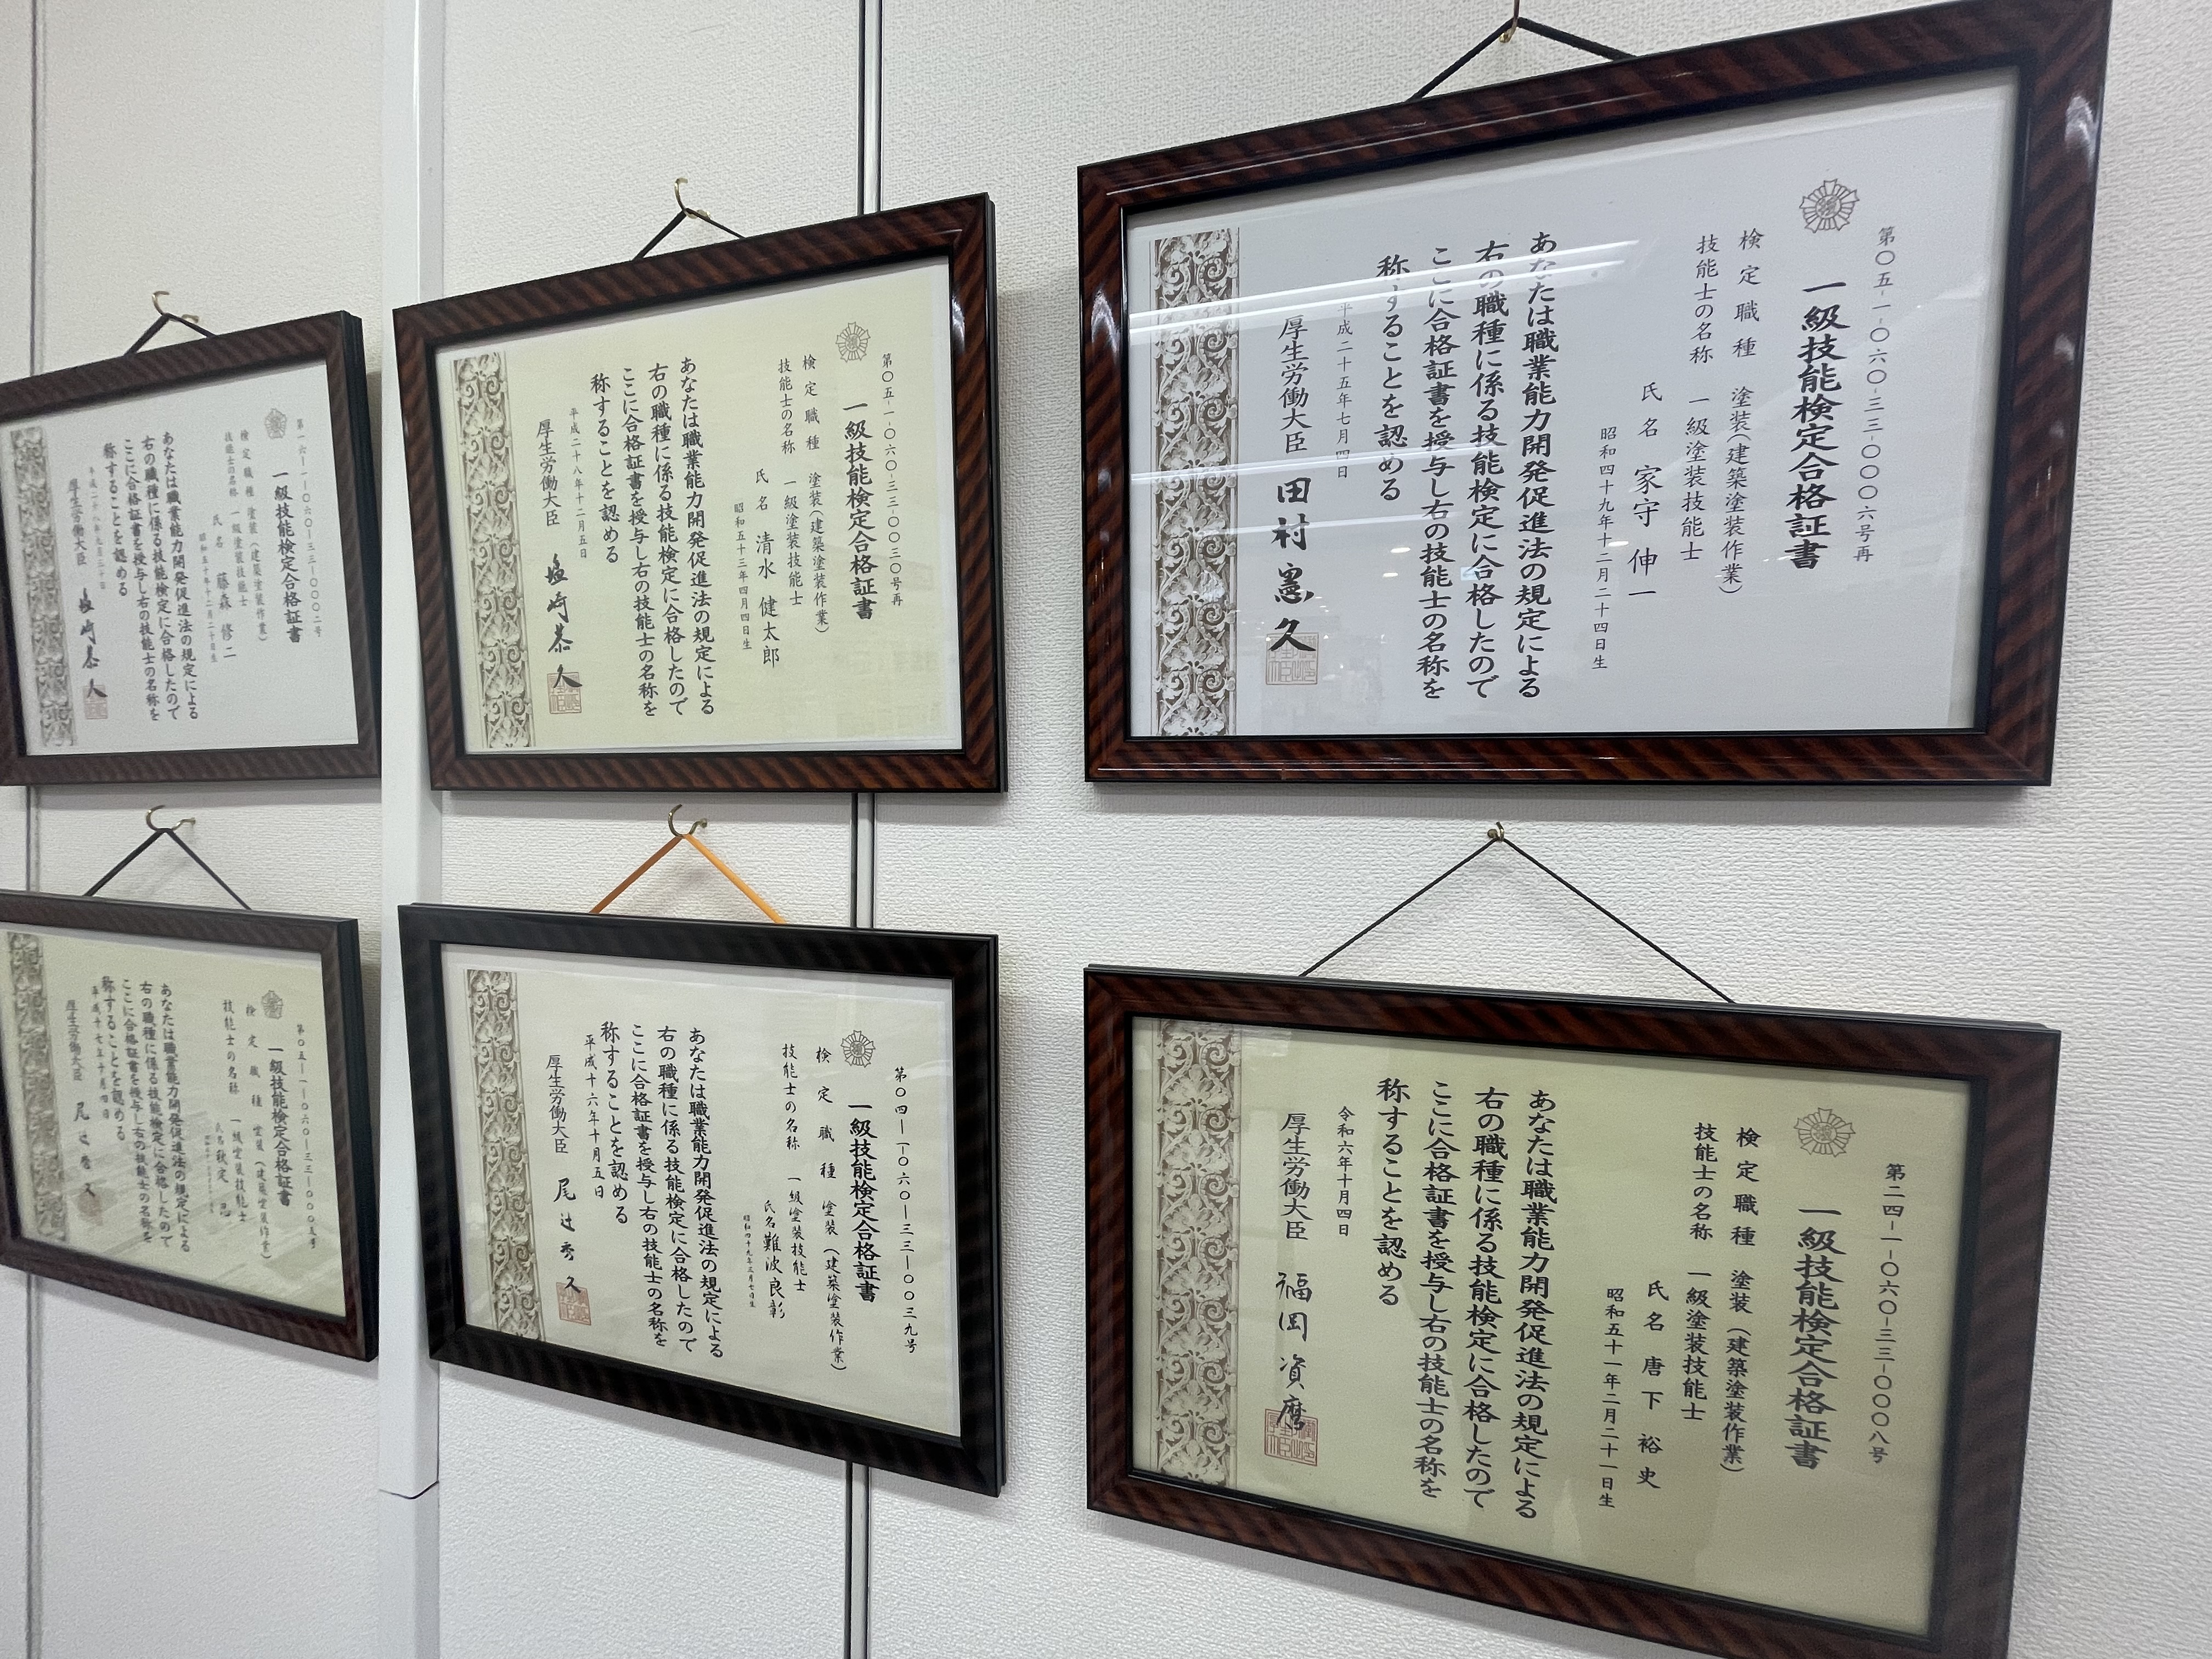 第〇五-一-〇六〇-三三-〇〇〇六号再
一級技能検定合格証書
検定職種 塗装(建築塗装作業)
技能士の名称 一級塗装技能士
氏名 家守 伸一
昭和四十九年十二月二十四日生
あなたは職業能力開発促進法の規定による
右の職種に係る技能検定に合格したので
ここに合格証書を授与し右の技能士の名称を
称することを認める
平成二十五年七月四日
厚生労働大臣 田村憲久
第〇五-一-〇六〇-三三-〇〇三〇号再
一級技能検定合格証書
検定職種 塗装(建築塗装作業)
技能士の名称 一級塗装技能士
氏名 清水 健太郎
昭和五十三年四月四日生
あなたは職業能力開発促進法の規定による
右の職種に係る技能検定に合格したので
ここに合格証書を授与し右の技能士の名称を
称することを認める
平成二十八年十二月五日
厚生労働大臣 塩崎恭久
第一六-一-〇六〇-三三-〇〇〇二号
一級技能検定合格証書
検定職種 塗装(建築塗装作業)
技能士の名称 一級塗装技能士
氏名 藤森 修二
昭和五十年十二月二十日生
あなたは職業能力開発促進法の規定による
右の職種に係る技能検定に合格したので
ここに合格証書を授与し右の技能士の名称を
称することを認める
平成二十八年九月三十日
厚生労働大臣 塩崎恭久
第二四-一-〇六〇-三三-〇〇〇八号
一級技能検定合格証書
検定職種 塗装(建築塗装作業)
技能士の名称 一級塗装技能士
氏名 唐下 裕史
昭和五十一年二月二十一日生
あなたは職業能力開発促進法の規定による
右の職種に係る技能検定に合格したので
ここに合格証書を授与し右の技能士の名称を
称することを認める
令和六年十月四日
厚生労働大臣 福岡資麿
第〇四-一-〇六〇-三三-〇〇三九号
一級技能検定合格証書
検定職種 塗装(建築塗装作業)
技能士の名称 一級塗装技能士
氏名 難波良彰
昭和四十九年三月七日生
あなたは職業能力開発促進法の規定による
右の職種に係る技能検定に合格したので
ここに合格証書を授与し右の技能士の名称を
称することを認める
平成十六年十月五日
厚生労働大臣 尾辻秀久
第〇五-一-〇六〇-三三-〇〇〇五号
一級技能検定合格証書
検定職種 塗装(建築塗装作業)
技能士の名称 一級塗装技能士
氏名 秋定 忍
あなたは職業能力開発促進法の規定による
右の職種に係る技能検定に合格したので
ここに合格証書を授与し右の技能士の名称を
称することを認める
平成十七年十月四日
厚生労働大臣 尾辻秀久